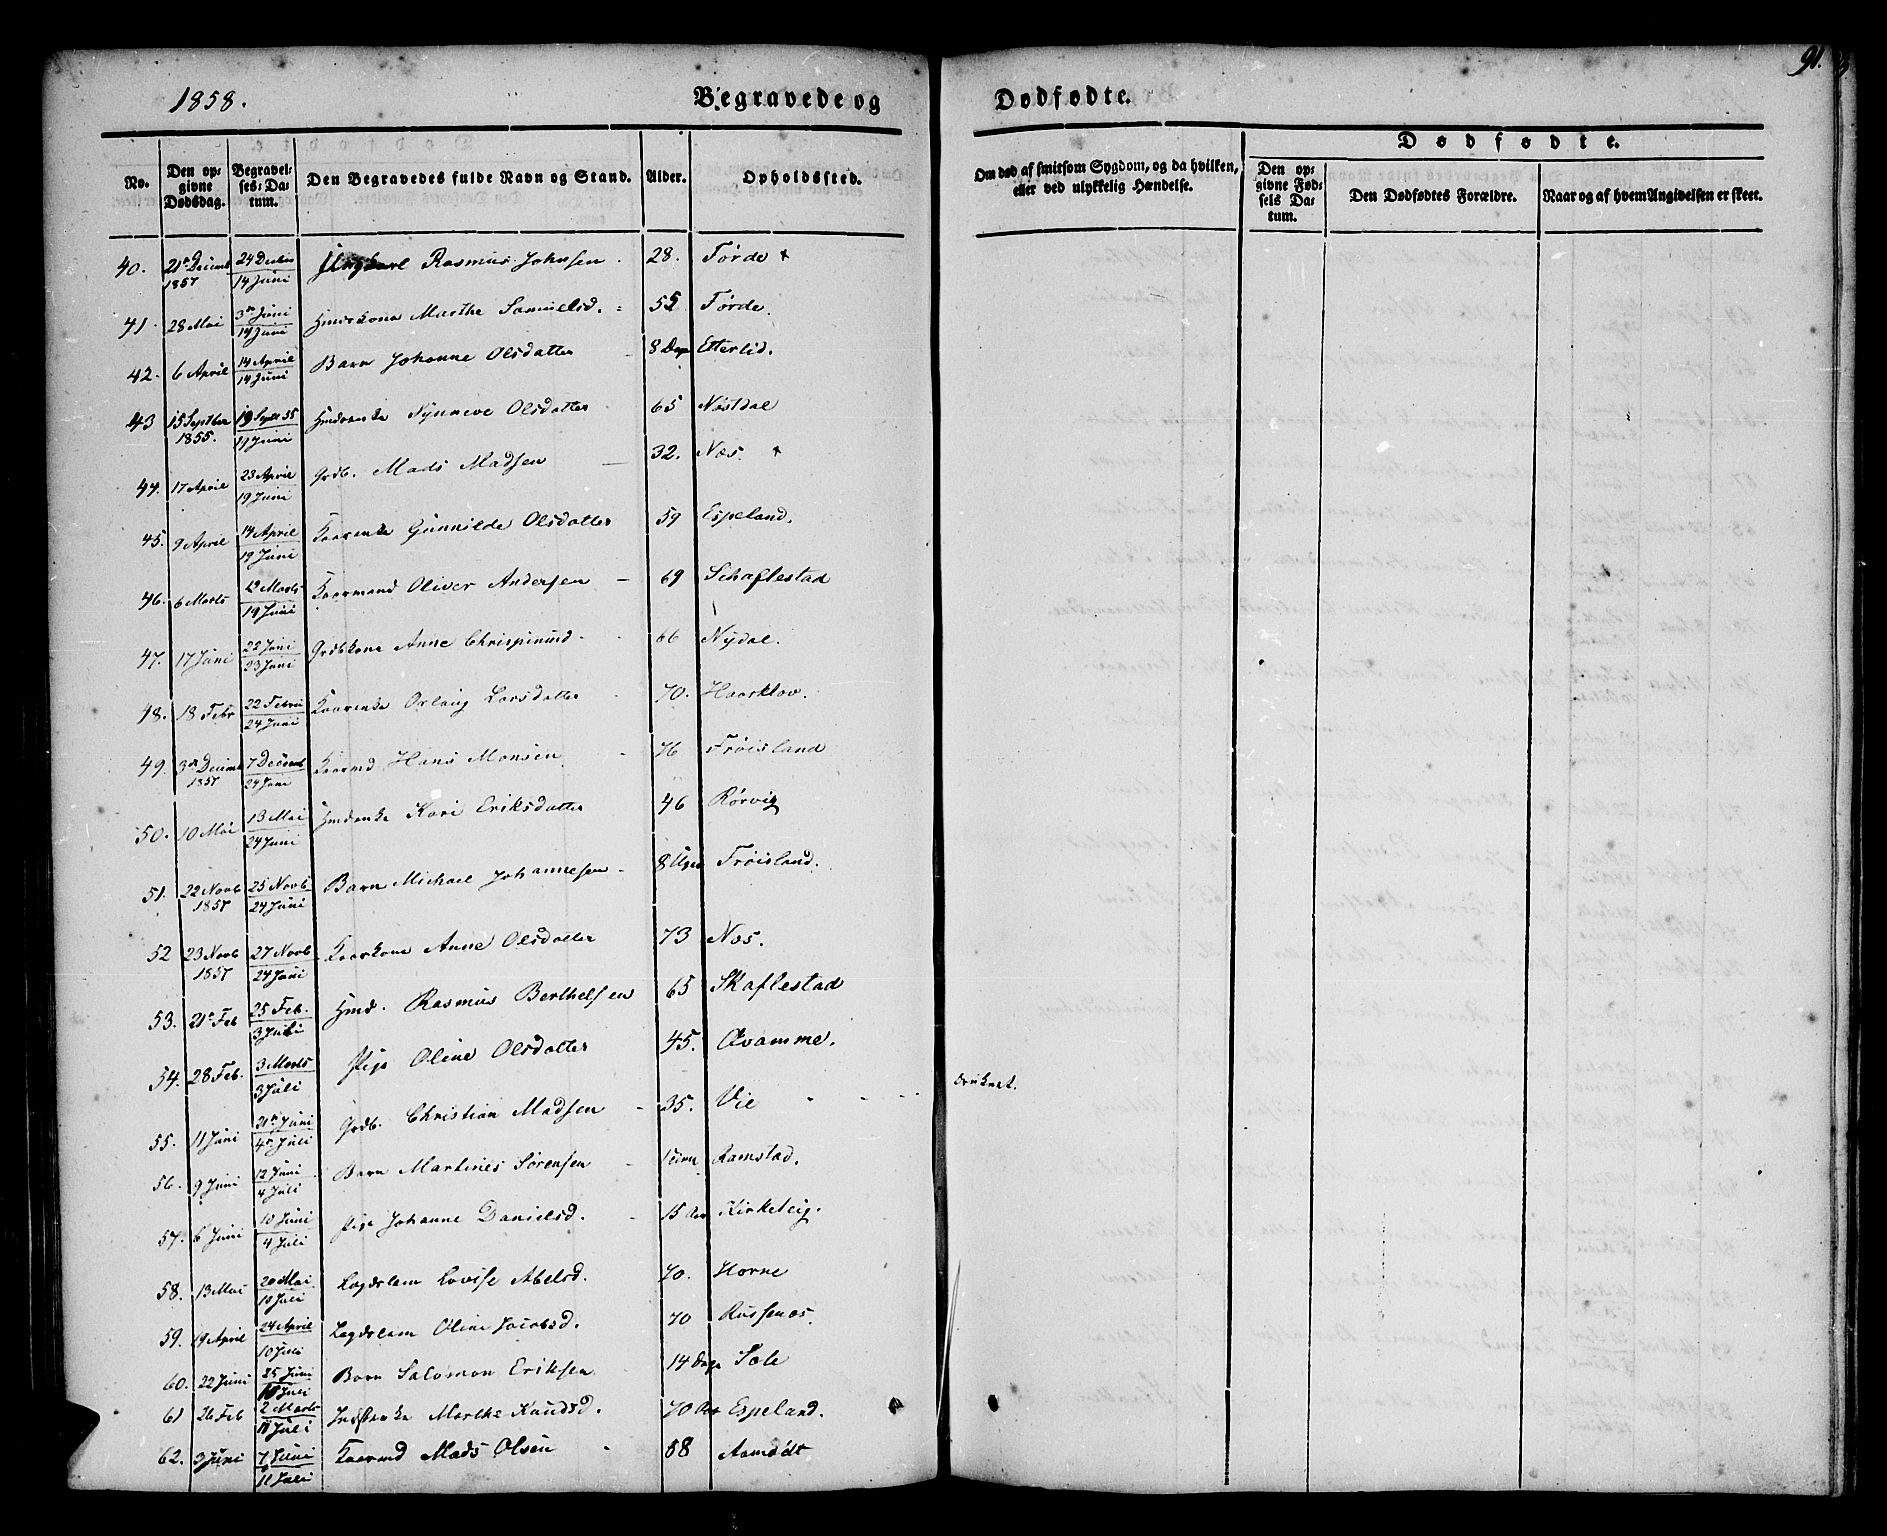 91.
1858. Begravede og Dødfødte.
No. Den opgivne Dødsdag. Begravelses-Datum. Den Begravedes fulde Navn og Stand. Alder. Opholdssted. Om død af smitsom Sygdom, og da hvilken, eller ved ulykkelig Hændelse.
Dødfødte.
Den opgivne Fødsels Datum. Den Dødfødtes Forældre. Naar og af hvem Angivelsen er skeet.
40. 21de Decemb 1857 24 Decbr 14 Juni Ungkarl Rasmus Johnsen 28. Førde
41. 28 Mai 3de Juni 14 Juni Huuskone Marthe Samuelsd. 55 Førde.
42. 6 April 14 April 14 Juni Barn Johanne Olsdatter 8 Dage Etterlid.
43 15 Septber 1855. 19 Septb 55 19 Juni Hmdenke Synneve Olsdatter 65 Nøstdal
44. 17 April 23 April 19 Juni Grdb. Mads Madsen 32. Næs.
45. 9 April 14 April 19 Juni Kaarenke Gunnilde Olsdatter 59 Espeland.
46. 6 Marts 12 Marts 19 Juni Kaarmand Oliver Andersen 69 Schaflestad
47. 17 Juni 22 Juni 23 Juni Grdbkone Anne Chrispinusd. 66 Nydal.
48. 18 Febr 22 Febru 24 Juni Kaarenke Orlaug Larsdatter 70. Haarklov.
49. 3de Decemb 1857 7 Decemb 24 Juni Kaarmd Hans Monsen 76 Frøisland
50. 10 Mai 13 Mai 24 Juni Hmdenke Kari Eriksdatter 46 Rørvig
51. 22 Novb 1857 25 Novb 24 Juni Barn Michael Johannesen 8 Uger Frøisland.
52 23 Novb 1857 27 Novb 24 Juni Kaarkone Anne Olsdatter 73 Næs.
53. 21de Feb 25 Feb. 3 Juli Hmd. Rasmus Berthelsen 65 Skaflestad
54. 28 Feb. 3 Marts 3 Juli Pige Oline Olsdatter 45. Qvamme.
55. 11 Juni 21de Juni 4de Juli Grdb. Christian Madsen 35. Vie druknet.
56. 9 Juni 12 Juni 4 Juli Barn Martines Sørensen Ramstad.
57. 6 Juni 10 Juni 4 Juli Pige Johanne Danielsd. 15 Aar Kirketeig.
58. 13 Mai 20 Mai 10 Juli Lægdslem Lovise Abelsd. 70. Horne
59. 19 April 24 April 10 Juli Lægdslem Oline Jacobsd. 70 Russenæs.
60. 22 Juni 25 Juni 10 Juli Barn Salomon Eriksen 14 Dage Sole
61 26 Feb 2 Marts 11 Juli Marthe Knudsd. 70 Aar Espeland.
62. 3 Juni 7 Juni 11 Juli Kaarmd Mads Olsen 58 Aamødt